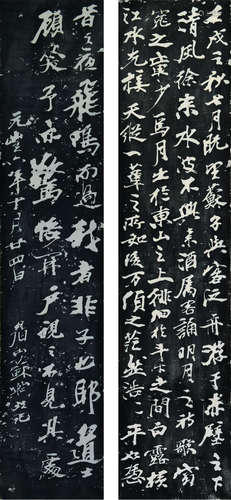 壬戌之秋七月既望蘇子與客泛舟游于赤壁之下
清風徐來水波不興舉酒屬客誦明月之詩歌窈
窕之章少焉月出於東山之上徘徊於斗牛之間白露橫
江水光接天縱一葦之所如凌萬頃之茫然浩浩乎如憑
昔之夜飛鳴而過我者非子也耶道士
顧笑予亦驚悟開戶視之不見其處
元豐六年十月廿四日
眉山蘇軾記